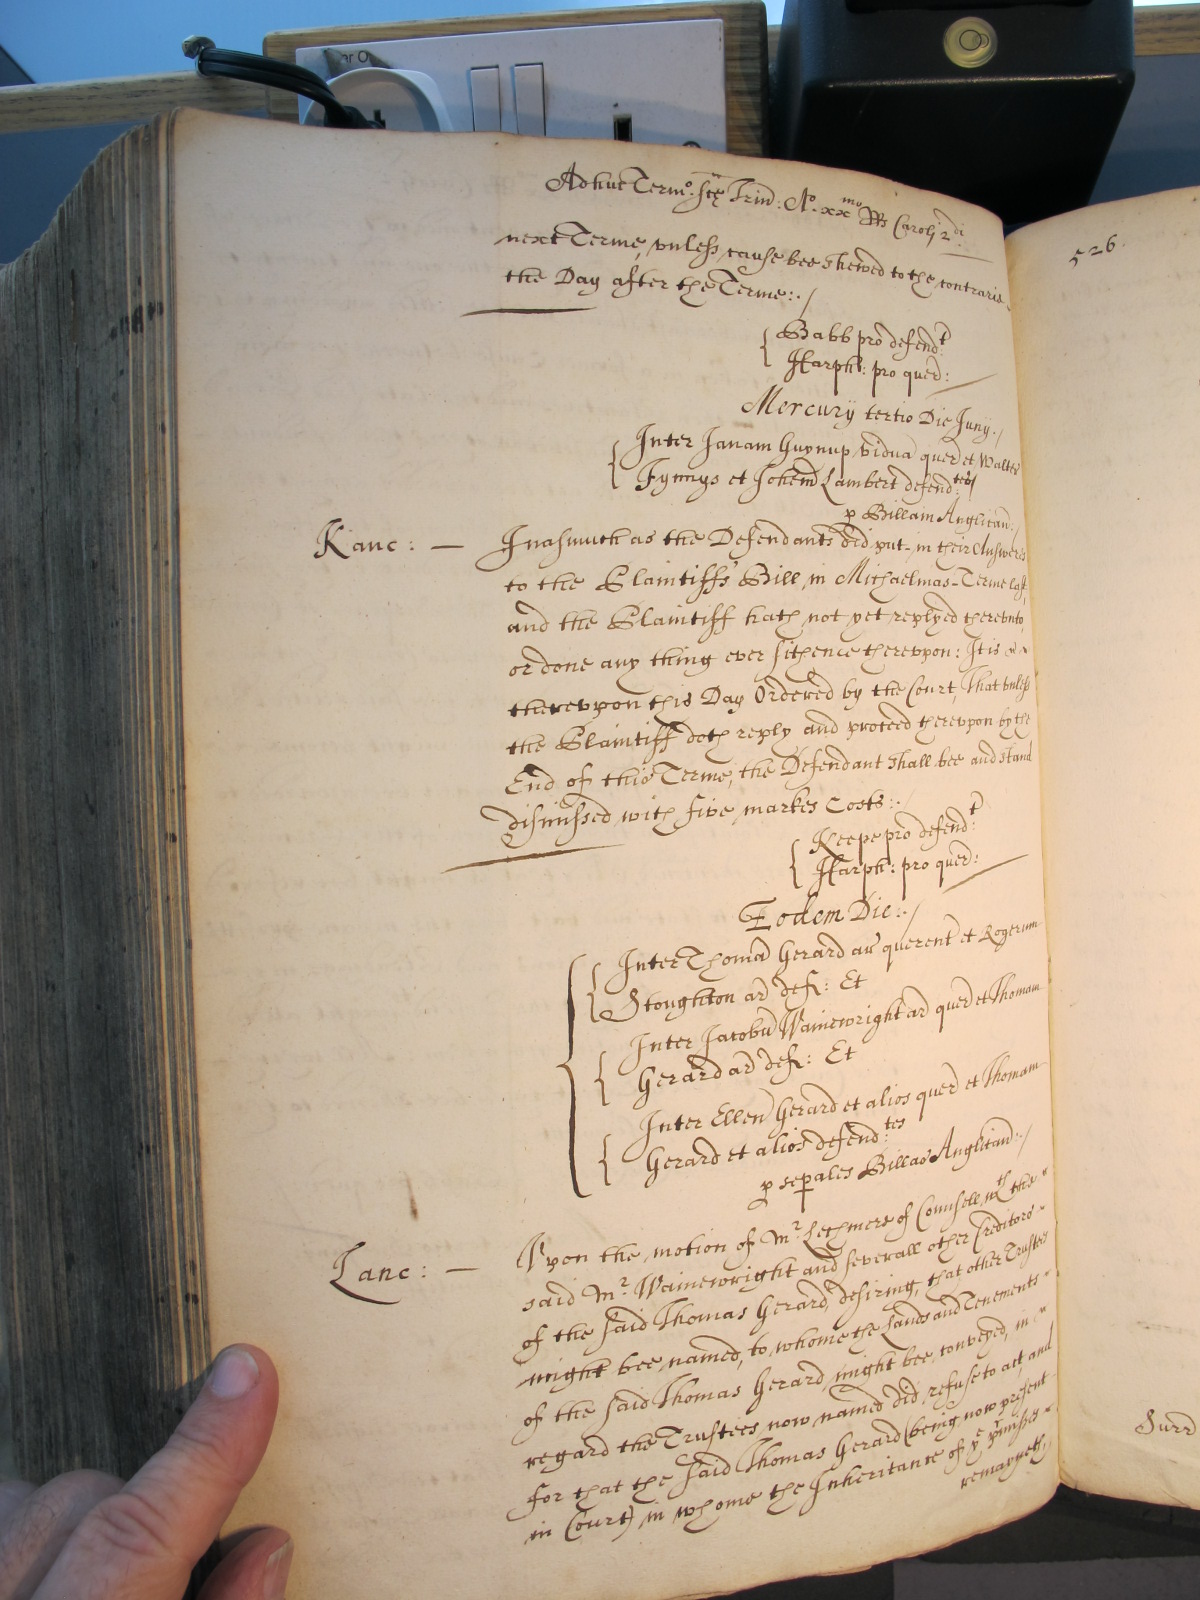 Adhuc Termo. Scte Trin: Ao. xxmo RRs Caroli 2di
next Terme, vnless cause bee shewed to the contrarie
the Day after the Terme:./
Babb pro defendt.
Harpr: pro quer:
Mercurij tertio Die Junij./
Inter Janam vidua quer et Walter
Fynnys et Johem Lambert defendtes/
p Billam Anglican:/
Kanc: — Inasmuch as the Defendants did put-in their Answeres
to the Plaintiffs Bill in Michaelmas-Terme last
and the Plaintiff hath not yet replyed therevnto,
or done any thing ever sithence therevpon: It is
therevpon this Day Ordered by the Court, That vnless
the Plaintiff doth reply and proceed therevpon by the
End of this Terme, the Defendant shall bee and stand
dismissed with five markes Costs:./
Keepe pro defendt:
Harpr: pro quer:
Eodem Die:./
Inter Thoma Gerard ar querent et Rogerum
Stoughton ar deft: Et
Inter Jacobu Wainewright ar quer et Thomam
Gerard ar deft: Et
Inter Ellen Gerard et alios quer et Thomam
Gerard et alios defendtes
p sepales Billas Anglican:/
Lanc: — Vpon the motion of Mr. Lechmere of Counsell wth the
said Mr. Wainewright and severall other Creditors
of the said Thomas Gerard, desiring, that other Trustees
might bee named, to whome the Lands and Tenements
of the said Thomas Gerard, might bee conveyed, in
regard the Trustees now named did refuse to act, and
for that the said Thomas Gerard (being now present
in Court) in whome the Inheritance of ye pmisses
remayneth,
526.
Surr